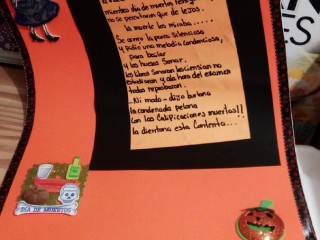 muertos dia de muertos
no se permitieron que de lejos.
la muerte los miraba.....
Se acerco la parca silenciosa
y pidio una melodia cadenciosa,
para bailar
y los huesos Sonar.
los libros Sonaron los cerraron no
estudiaron y a la hora del examen
todos reprobaron.
-Ni modo-dijo burlona
la condenada pelona
con las Calificaciones muertas!!
la dientona esta Contenta....
DIA DE MUERTOS
ES